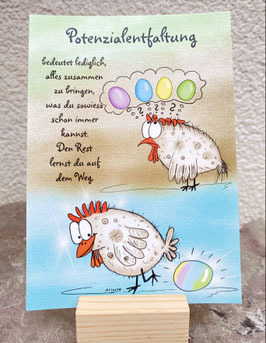 Potenzialentfaltung
bedeutet lediglich,
alles zusammen
zu bringen,
was du sowieso
schon immer
kannst.
Den Rest
lernst du auf
dem Weg.
? ? ? ?